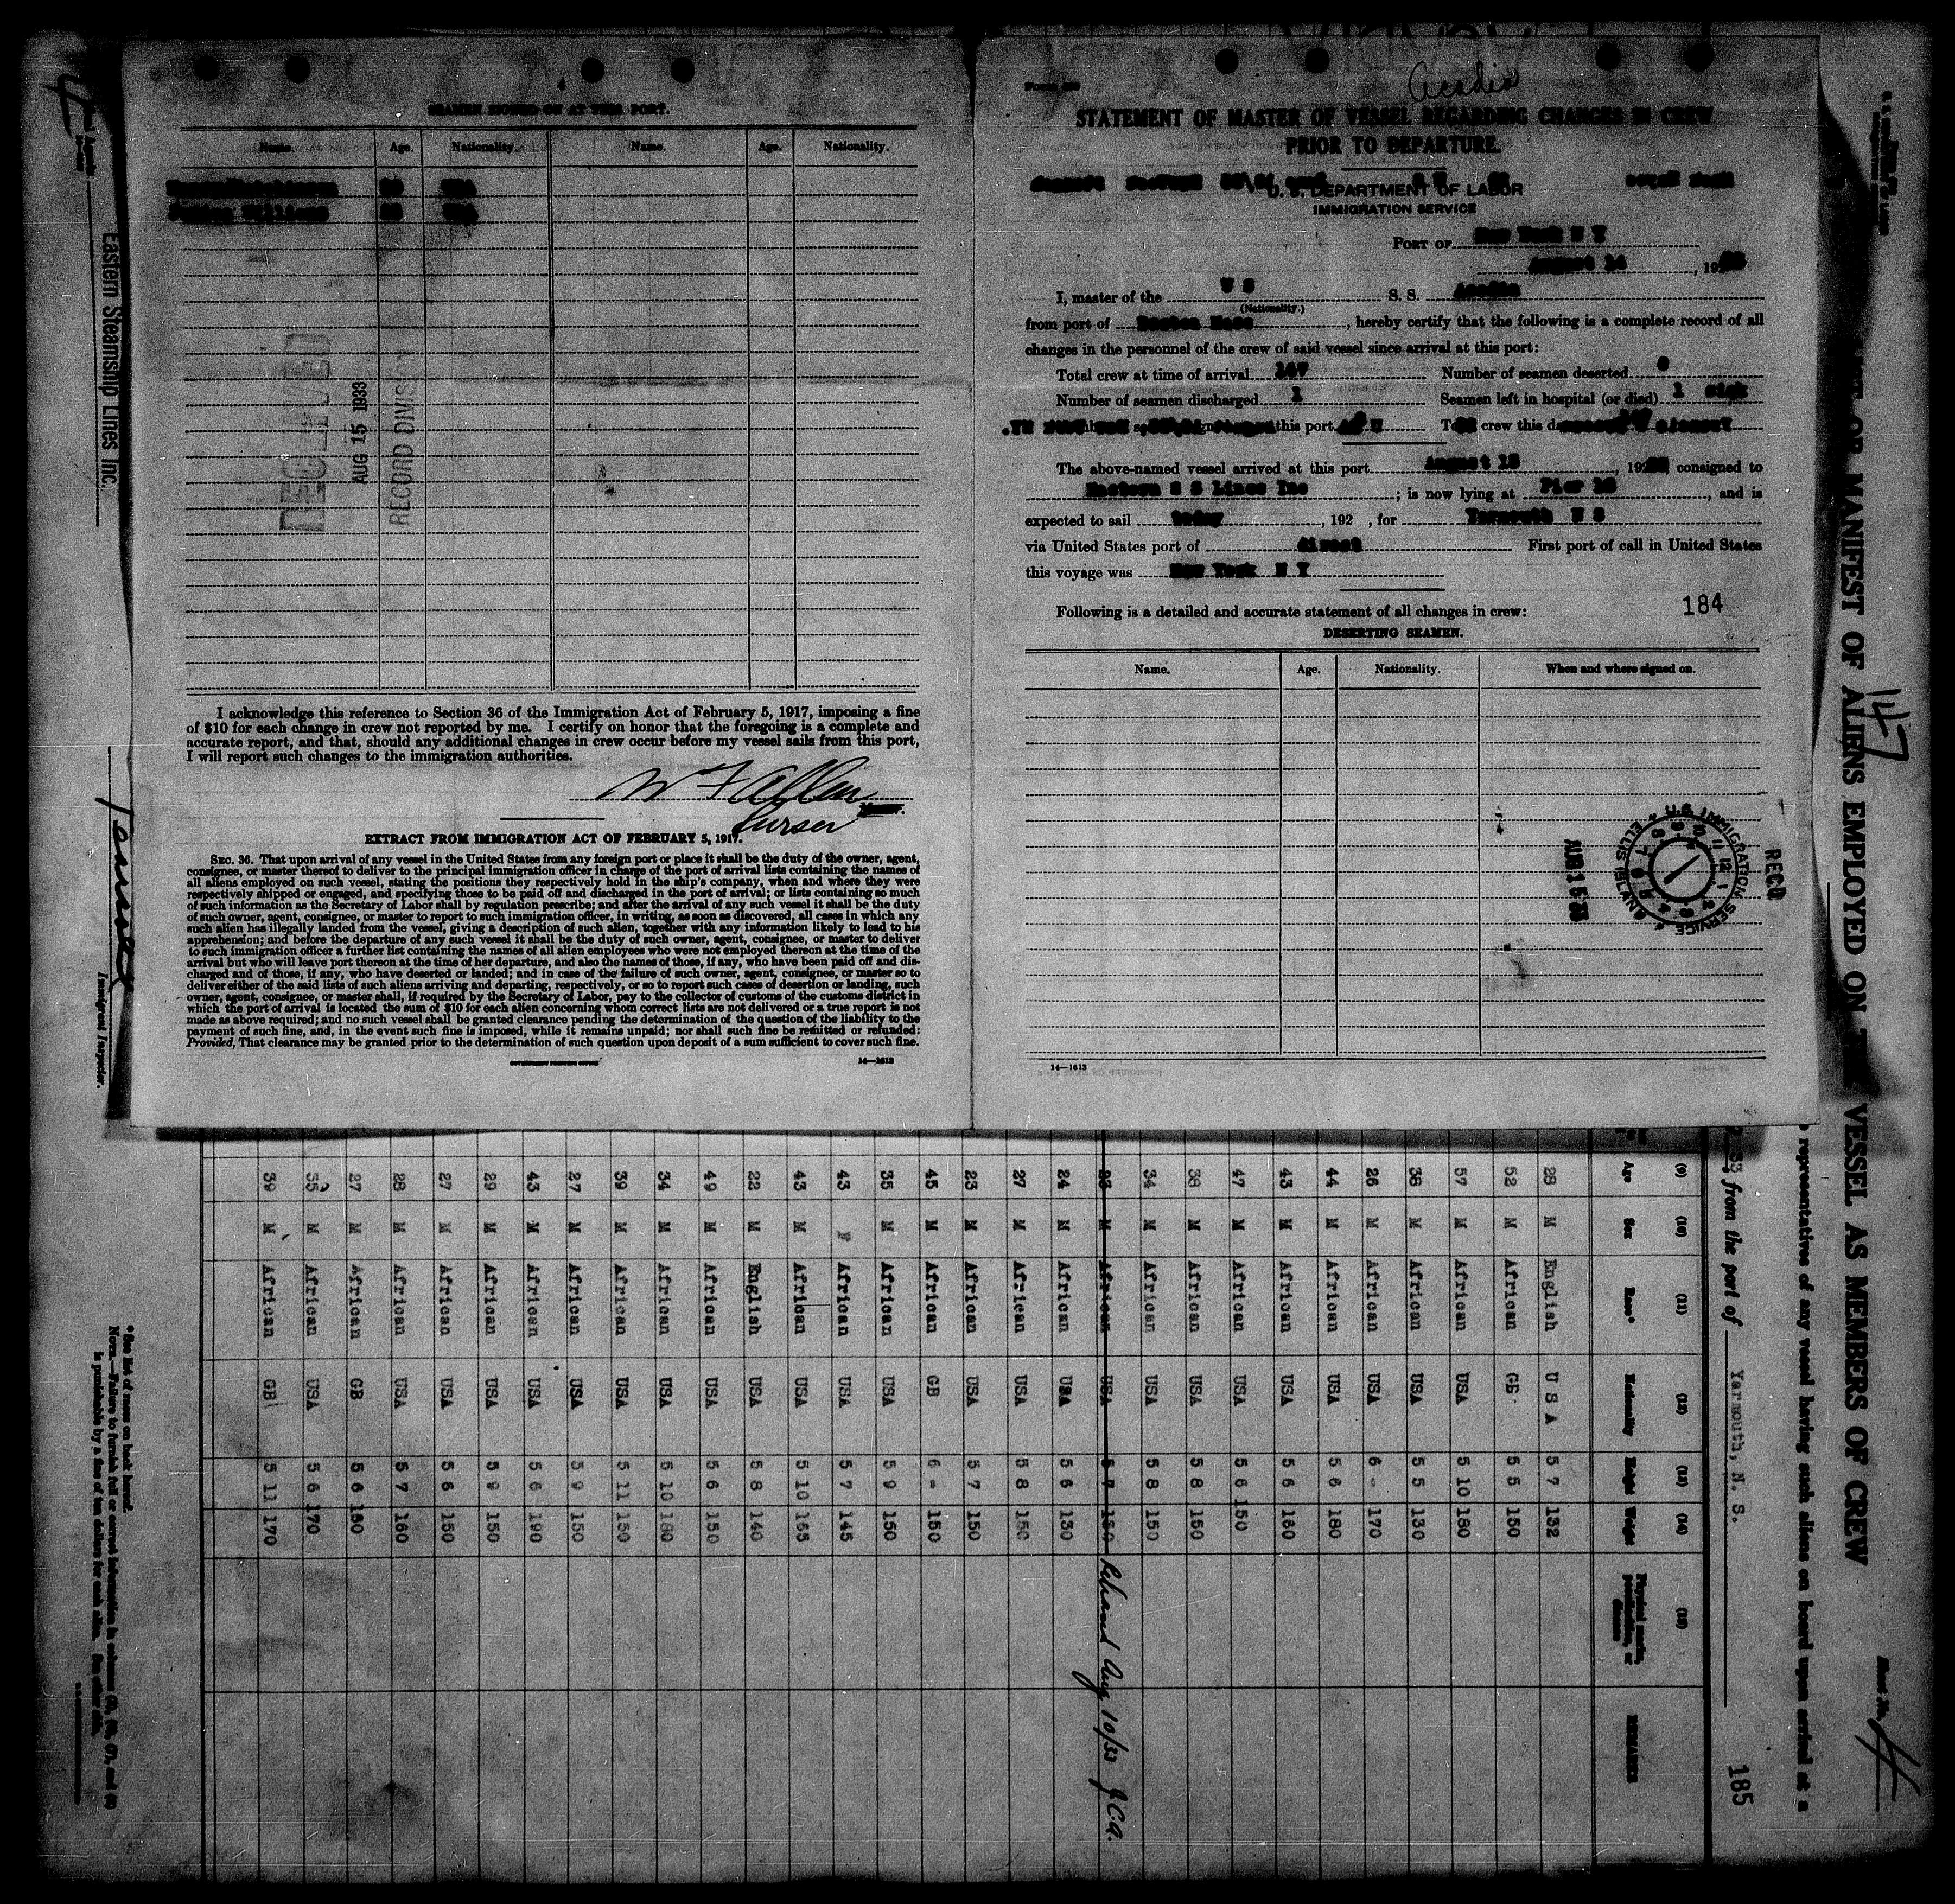 4
SEAMEN SIGNED ON AT THIS PORT.
Name. Age. Nationality. Name. Age. Nationality.
RECEIVED
AUG 15 1933
RECORD DIVISION
I acknowledge this reference to Section 36 of the Immigration Act of February 5, 1917, imposing a fine
of $10 for each change in crew not reported by me. I certify on honor that the foregoing is a complete and
accurate report, and that, should any additional changes in crew occur before my vessel sails from this port,
I will report such changes to the immigration authorities.
W F Allen
Purser
EXTRACT FROM IMMIGRATION ACT OF FEBRUARY 5, 1917.
SEC. 36. That upon arrival of any vessel in the United States from any foreign port or place it shall be the duty of the owner, agent,
consignee, or master thereof to deliver to the principal immigration officer in charge of the port of arrival lists containing the names of
all aliens employed on such vessel, stating the positions they respectively hold in the ship's company, when and where they were
respectively shipped or engaged, and specifying those to be paid off and discharged in the port of arrival; or lists containing so much
of such information as the Secretary of Labor shall by regulation prescribe; and after the arrival of any such vessel it shall be the duty
of such owner, agent, consignee, or master to report to such immigration officer, in writing, as soon as discovered, all cases in which any
such alien has illegally landed from the vessel, giving a description of such alien, together with any information likely to lead to his
apprehension; and before the departure of any such vessel it shall be the duty of such owner, agent, consignee, or master to deliver
to such immigration officer a further list containing the names of all alien employees who were not employed thereon at the time of the
arrival but who will leave port thereon at the time of her departure, and also the names of those, if any, who have been paid off and dis-
charged and of those, if any, who have deserted or landed; and in case of the failure of such owner, agent, consignee, or master so to
deliver either of the said lists of such aliens arriving and departing, respectively, or so to report such cases of desertion or landing, such
owner, agent, consignee, or master shall, if required by the Secretary of Labor, pay to the collector of customs of the customs district in
which the port of arrival is located the sum of $10 for each alien concerning whom correct lists are not delivered or a true report is not
made as above required; and no such vessel shall be granted clearance pending the determination of the question of the liability to the
payment of such fine, and, in the event such fine is imposed, while it remains unpaid; nor shall such fine be remitted or refunded:
Provided, That clearance may be granted prior to the determination of such question upon deposit of a sum sufficient to cover such fine.
GOVERNMENT PRINTING OFFICE 14—1613
Acadia
STATEMENT OF MASTER OF VESSEL REGARDING CHANGES IN CREW
PRIOR TO DEPARTURE.
U. S. DEPARTMENT OF LABOR
IMMIGRATION SERVICE
PORT OF New York N Y
August 14, 19
I, master of the U S S. S. Acadia
(Nationality.)
from port of Boston Mass, hereby certify that the following is a complete record of all
changes in the personnel of the crew of said vessel since arrival at this port:
Total crew at time of arrival 147 Number of seamen deserted 0
Number of seamen discharged 1 Seamen left in hospital (or died) 1 sick
this port crew this
The above-named vessel arrived at this port August 13, 19 consigned to
Eastern S S Lines Inc; is now lying at Pier 18, and is
expected to sail today, 192 , for Yarmouth N S
via United States port of direct First port of call in United States
this voyage was New York N Y
Following is a detailed and accurate statement of all changes in crew:
184
DESERTING SEAMEN.
Name. Age. Nationality. When and where signed on.
U.S. IMMIGRATION SERVICE ELLIS ISLAND
REC'D
AUG 15 33
14—1613
Eastern Steamship Lines Inc.
Immigrant Inspector.
147
LIST OR MANIFEST OF ALIENS EMPLOYED ON THE VESSEL AS MEMBERS OF CREW
representatives of any vessel having such aliens on board upon arrival at a
33, from the port of Yarmouth, N. S.
185
Sheet No. 4
(9) (10) (11) (12) (13) (14) (15)
Age Sex Race* Nationality Height Weight Physical marks, peculiarities, or disease REMARKS
28 M English U S A 5 7 132
52 M African GB 5 5 150
57 M African USA 5 10 180
38 M African USA 5 5 130
26 M African USA 6 - 170
44 M African USA 5 6 180
43 M African USA 5 6 160
47 M African USA 5 6 150
38 M African USA 5 8 150
34 M African USA 5 8 150
23 M African USA 5 7 150 Aug 10/33 J.C.A.
24 M African USA 5 6 130
27 M African USA 5 8 150
23 M African USA 5 7 150
45 M African GB 6 - 150
35 M African USA 5 9 150
43 F African USA 5 7 145
43 M African USA 5 10 165
22 M English USA 5 8 140
49 M African USA 5 6 150
34 M African USA 5 10 180
39 M African USA 5 11 150
27 M African USA 5 9 150
43 M African USA 5 6 190
29 M African USA 5 9 150
27 M African USA 5 6 150
28 M African USA 5 7 160
27 M African GB 5 6 160
35 M African USA 5 6 170
39 M African GB 5 11 170
*See list of races on back hereof.
NOTE.—Failure to furnish full or correct information in columns
is punishable by a fine of ten dollars for each alien. See other side.